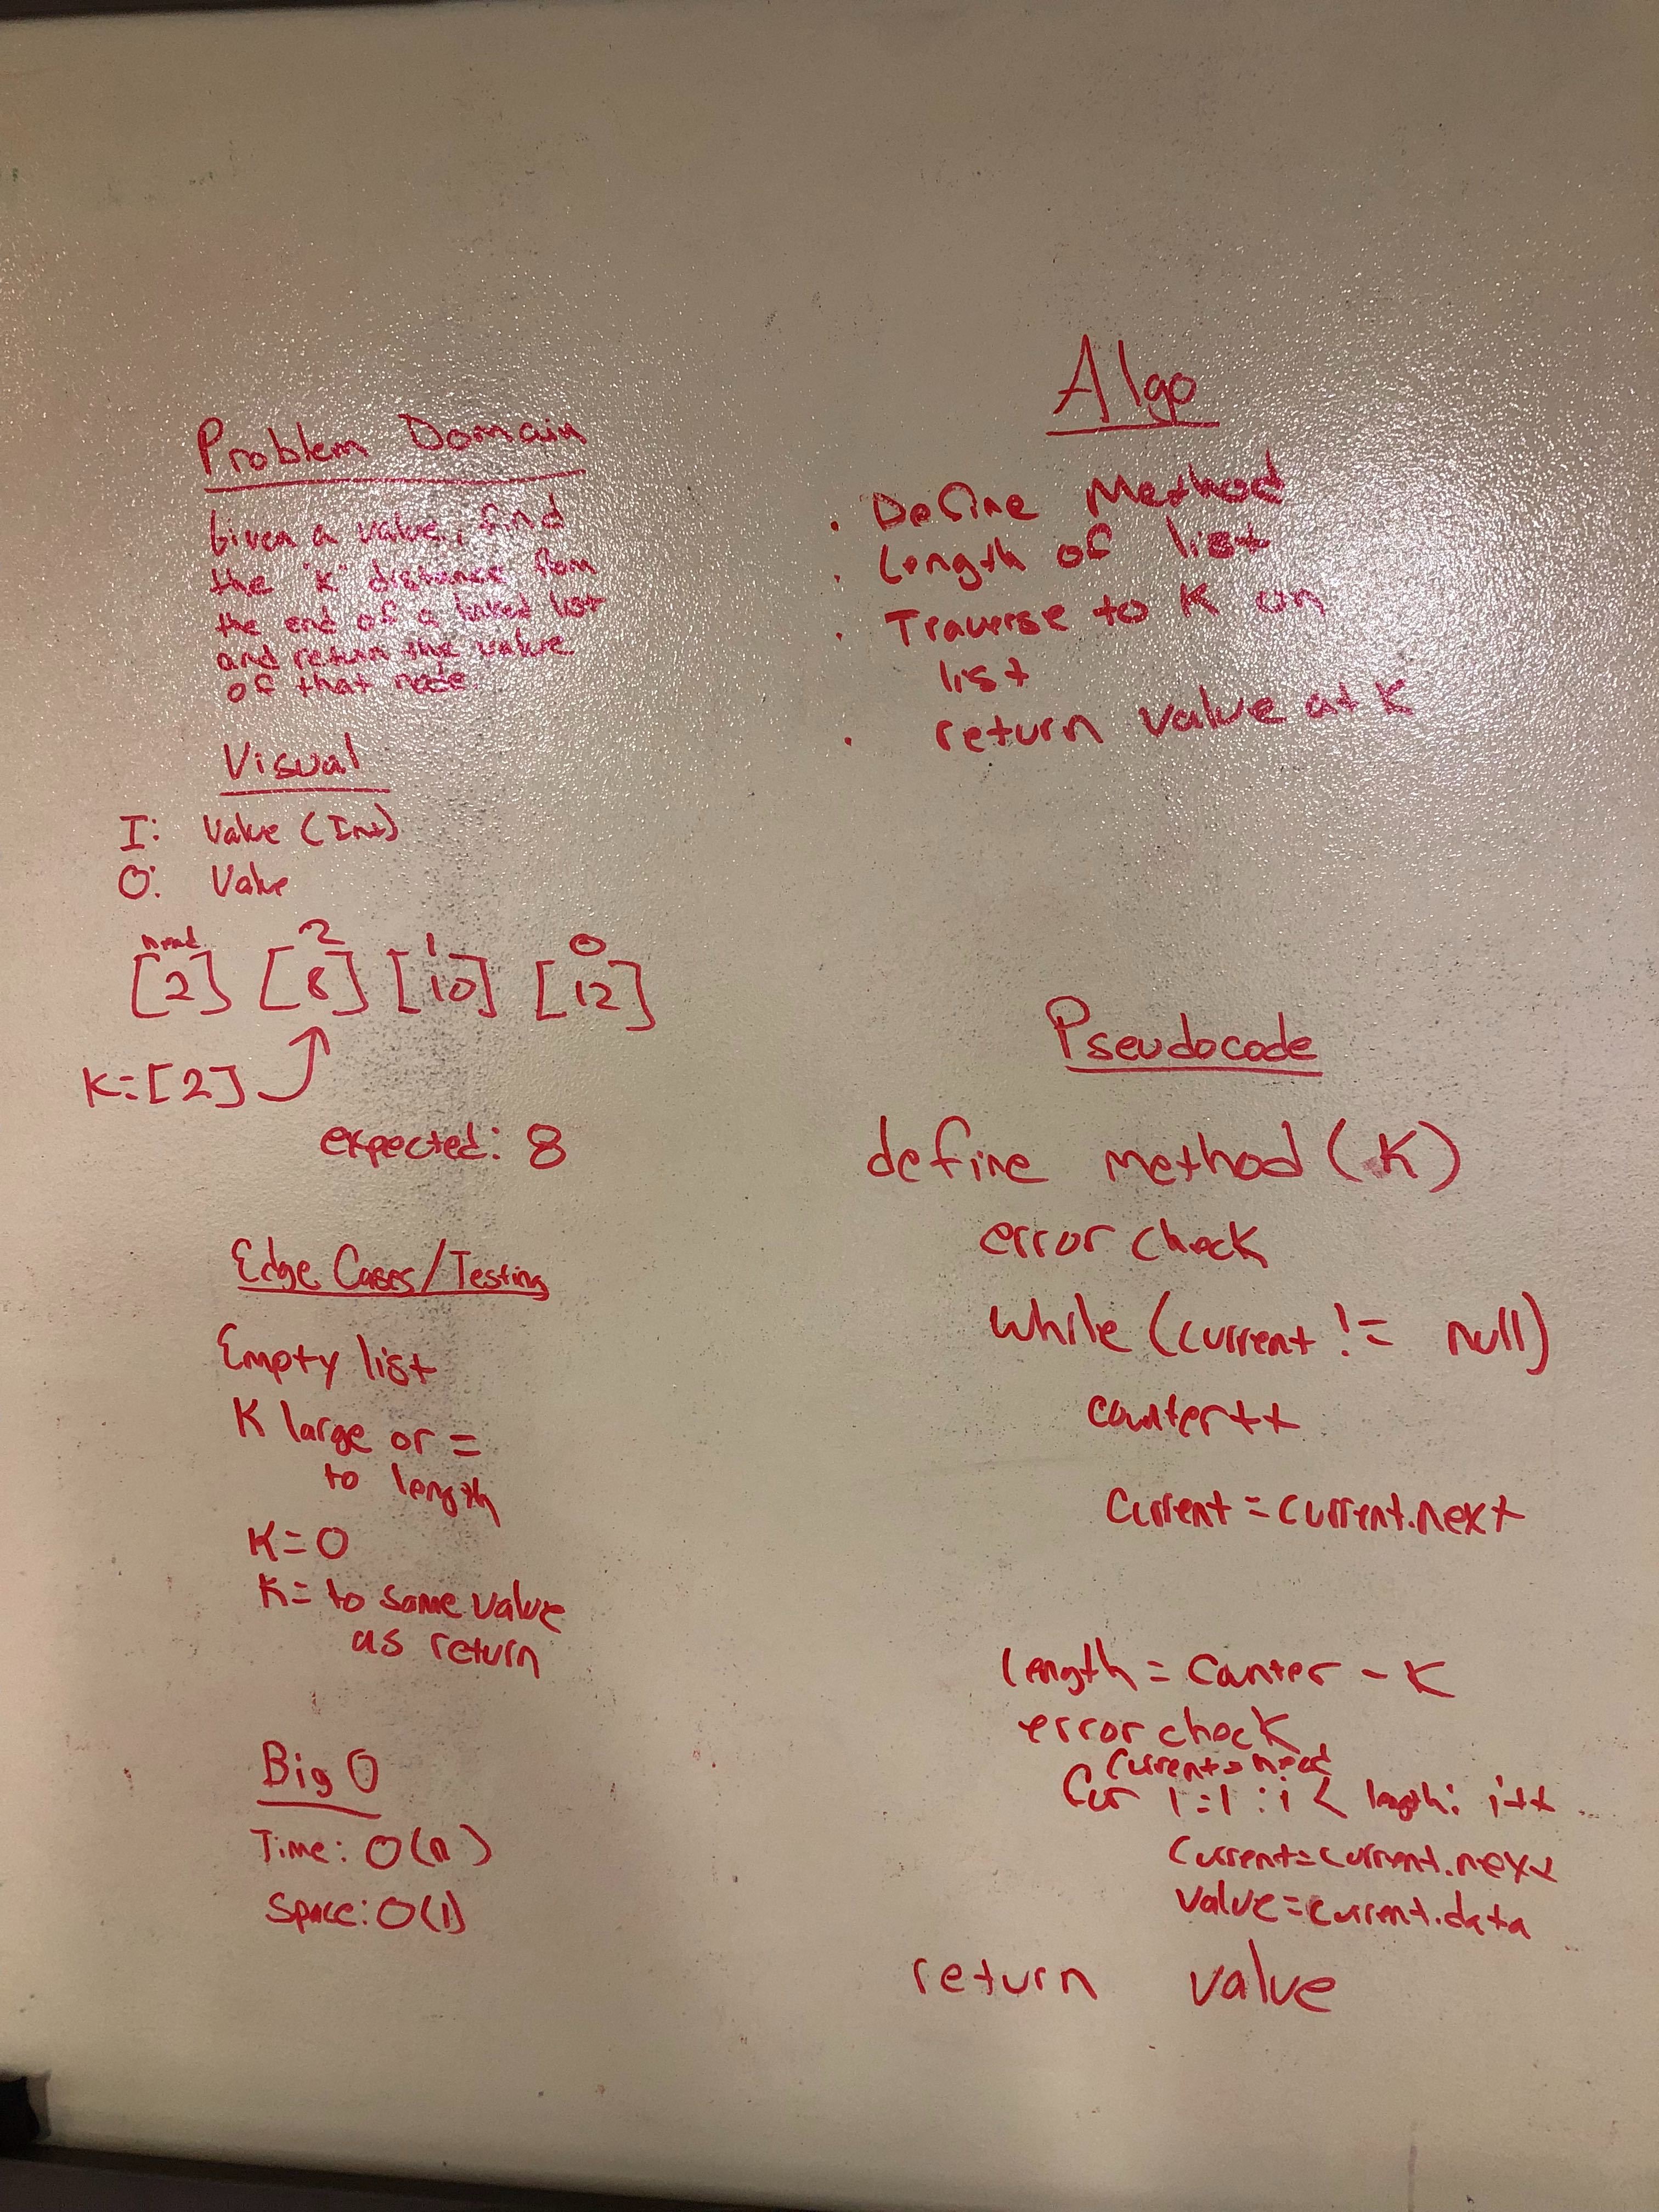 Problem Domain
Given a value, find
the "K" distance from
the end of a linked list
and return the value
of that node
Visual
I: Value (Int)
O: Value
head 2 1 0
[2] [8] [10] [12]
K=[2]
expected: 8
Edge Cases/Testing
Empty list
K large or =
to length
K=0
K= to same value
as return
Big O
Time: O(n)
Space: O(1)
Algo
· Define Method
· Length of list
· Traverse to K on
list
· return value at K
Pseudocode
define method (K)
error check
while (current != null)
counter++
Current = current.next
length = counter - K
error check
Current = head
for i=1 : i < length: i++
Current=current.next
value=current.data
return value